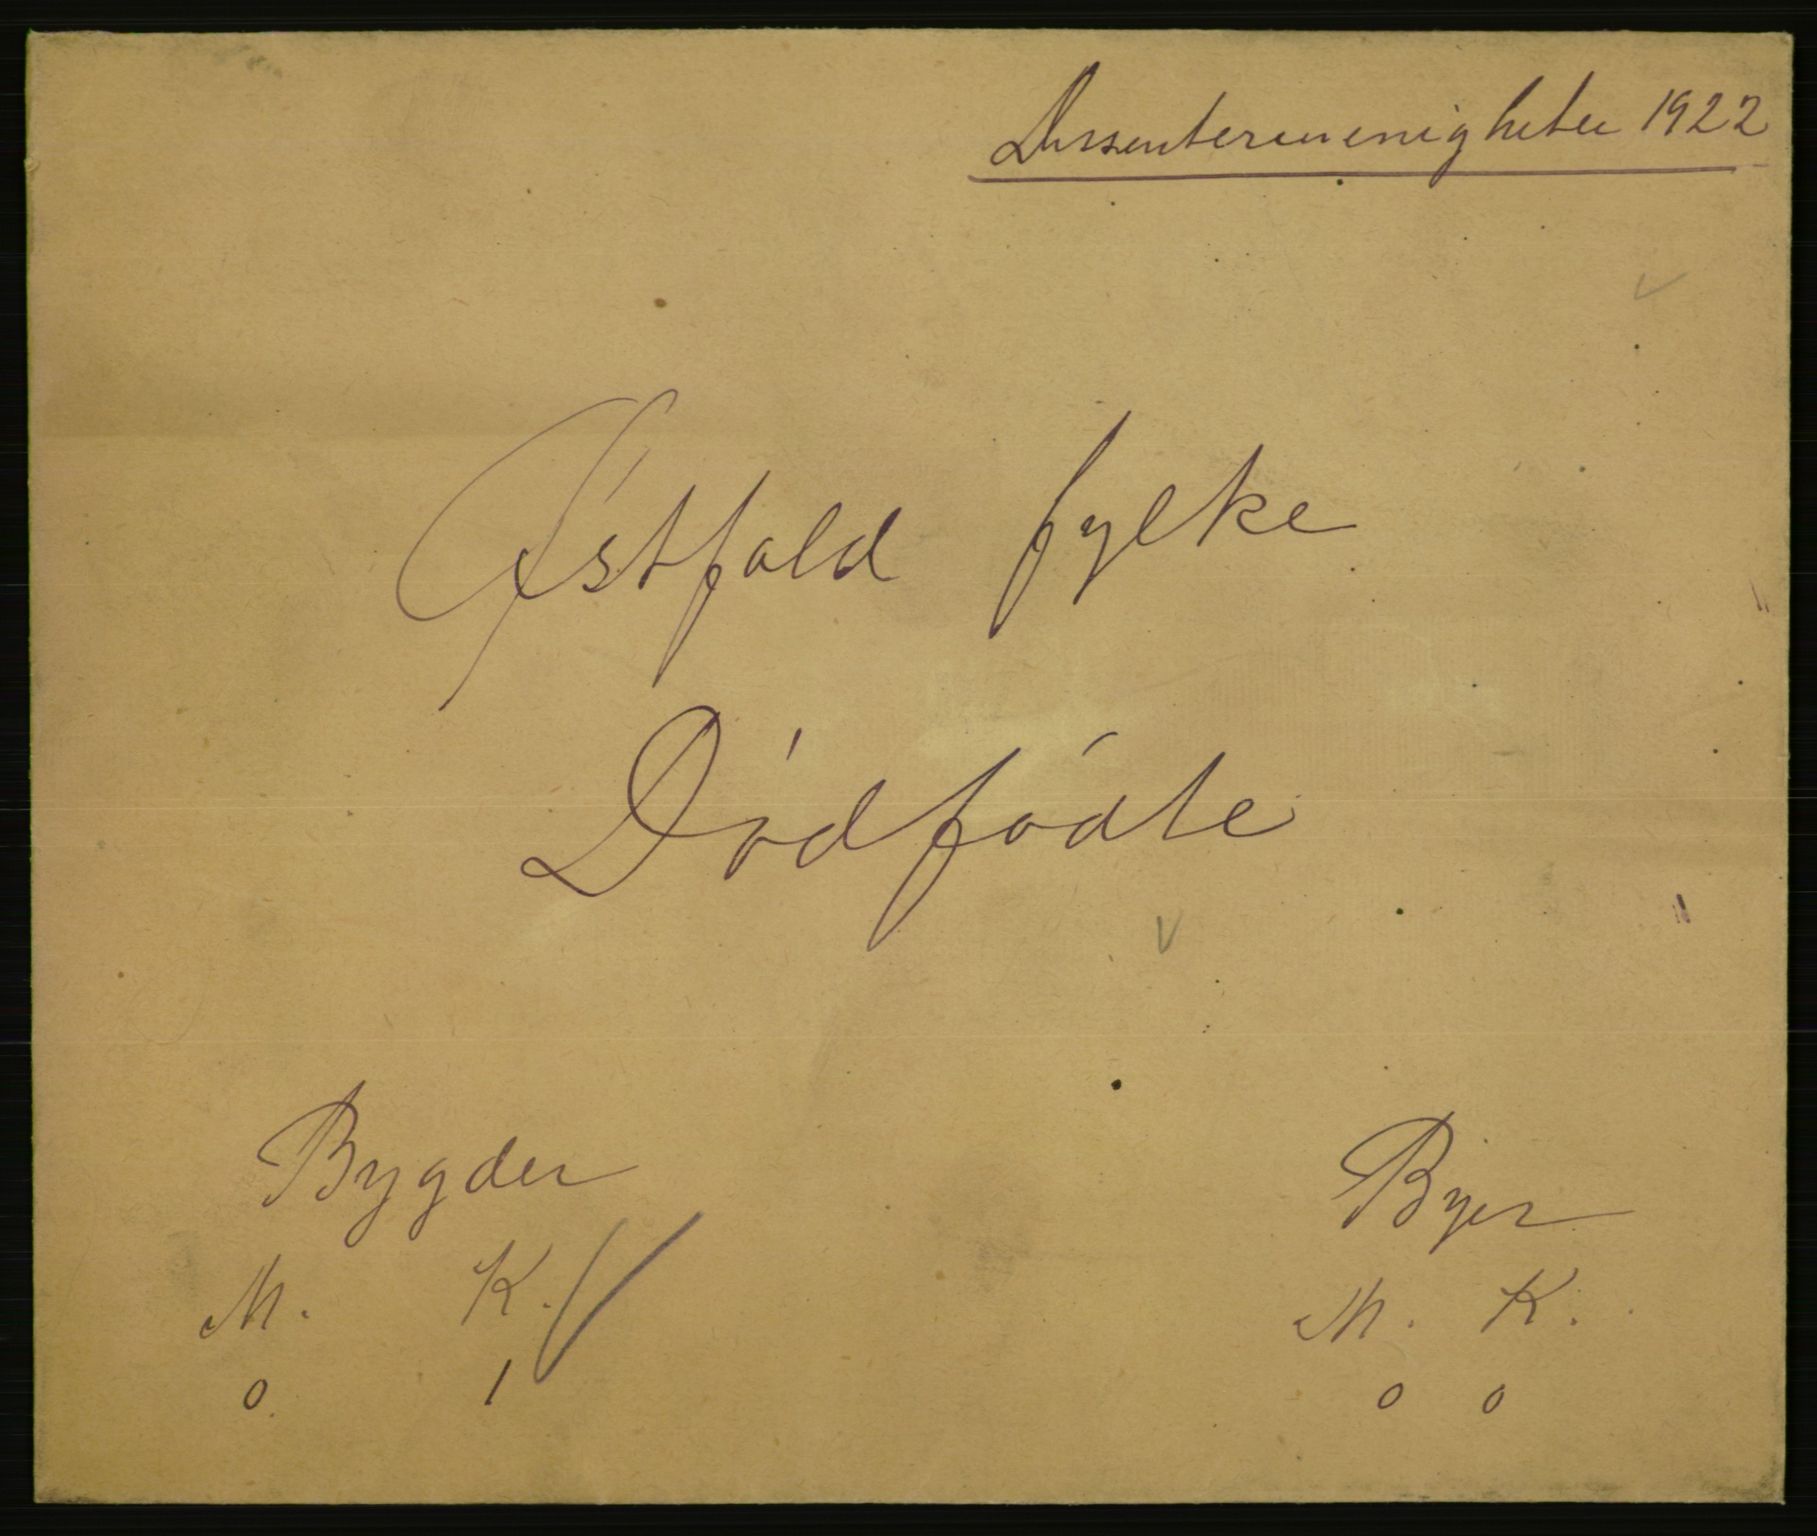 Dissentermenigheter 1922
Østfold fylke
Dødfødte
Bygder
Byer
M. K.
M. K.
0 1
0 0